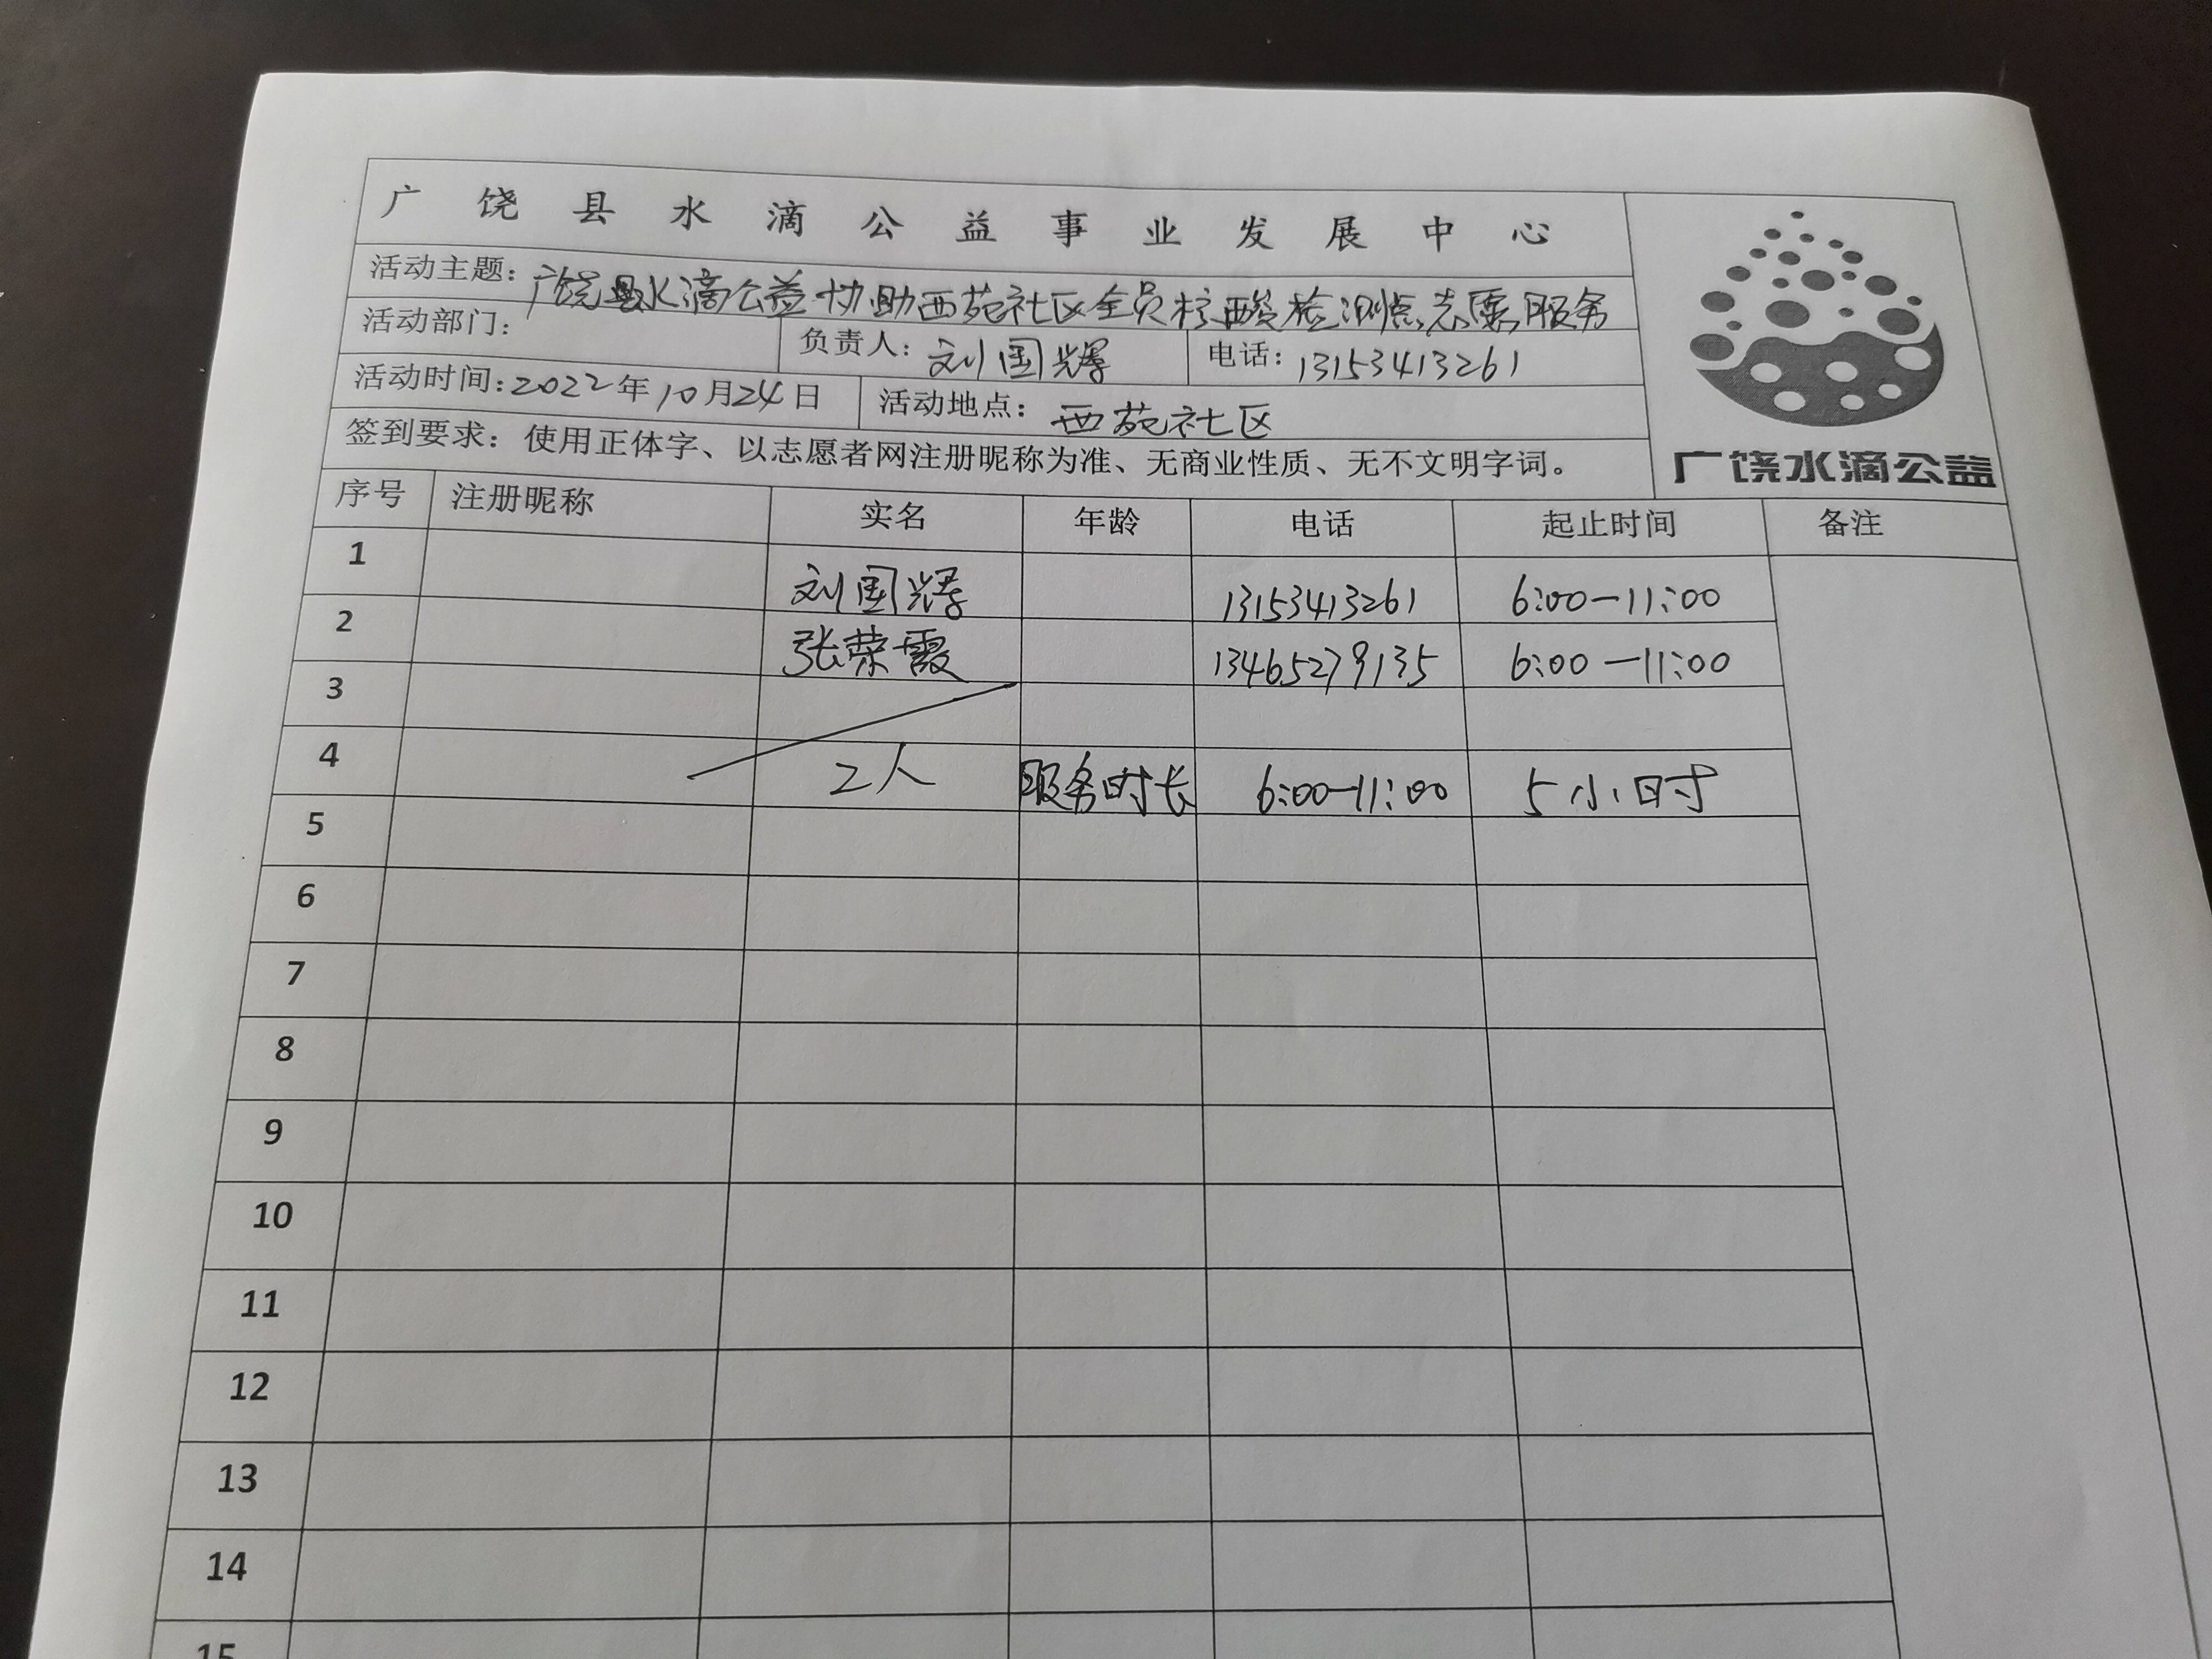 广饶县水滴公益事业发展中心
活动主题：广饶县水滴公益协助西苑社区全员核酸检测点志愿服务
活动部门： 负责人：刘国辉 电话：13153413261
活动时间：2022年10月24日 活动地点：西苑社区
签到要求：使用正体字、以志愿者网注册昵称为准、无商业性质、无不文明字词。
广饶水滴公益
序号 注册昵称 实名 年龄 电话 起止时间 备注
1 刘国辉 13153413261 6:00—11:00
2 张荣霞 13465279135 6:00—11:00
3
4 2人 服务时长 6:00—11:00 5小时
5
6
7
8
9
10
11
12
13
14
15